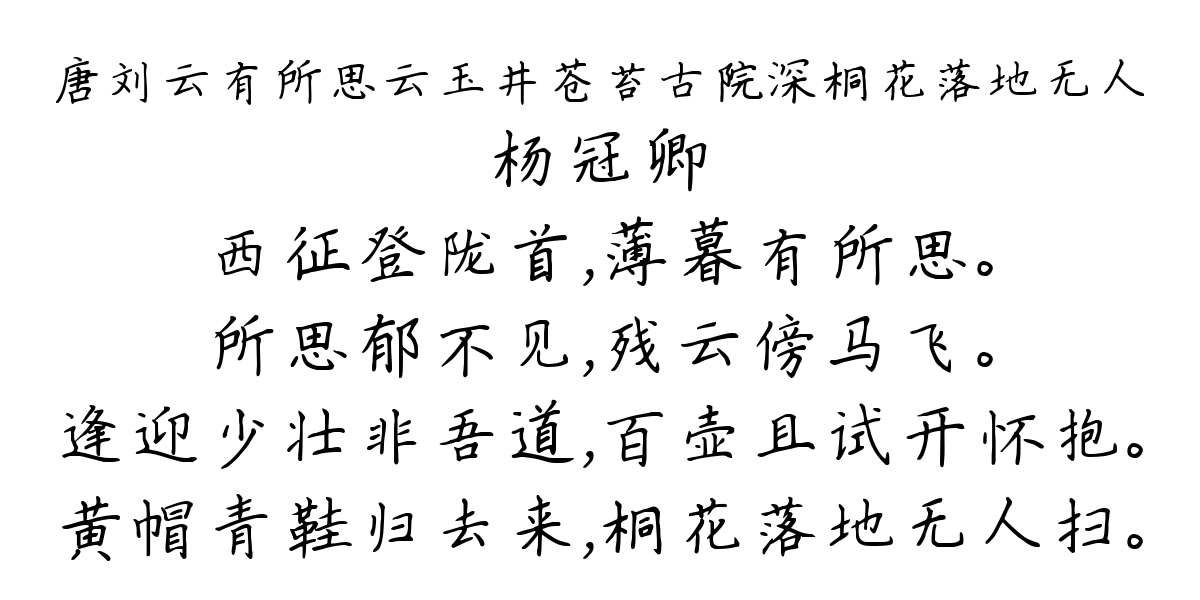 唐刘云有所思云玉井苍苔古院深桐花落地无人
杨冠卿
西征登陇首,薄暮有所思。
所思郁不见,残云傍马飞。
逢迎少壮非吾道,百壶且试开怀抱。
黄帽青鞋归去来,桐花落地无人扫。